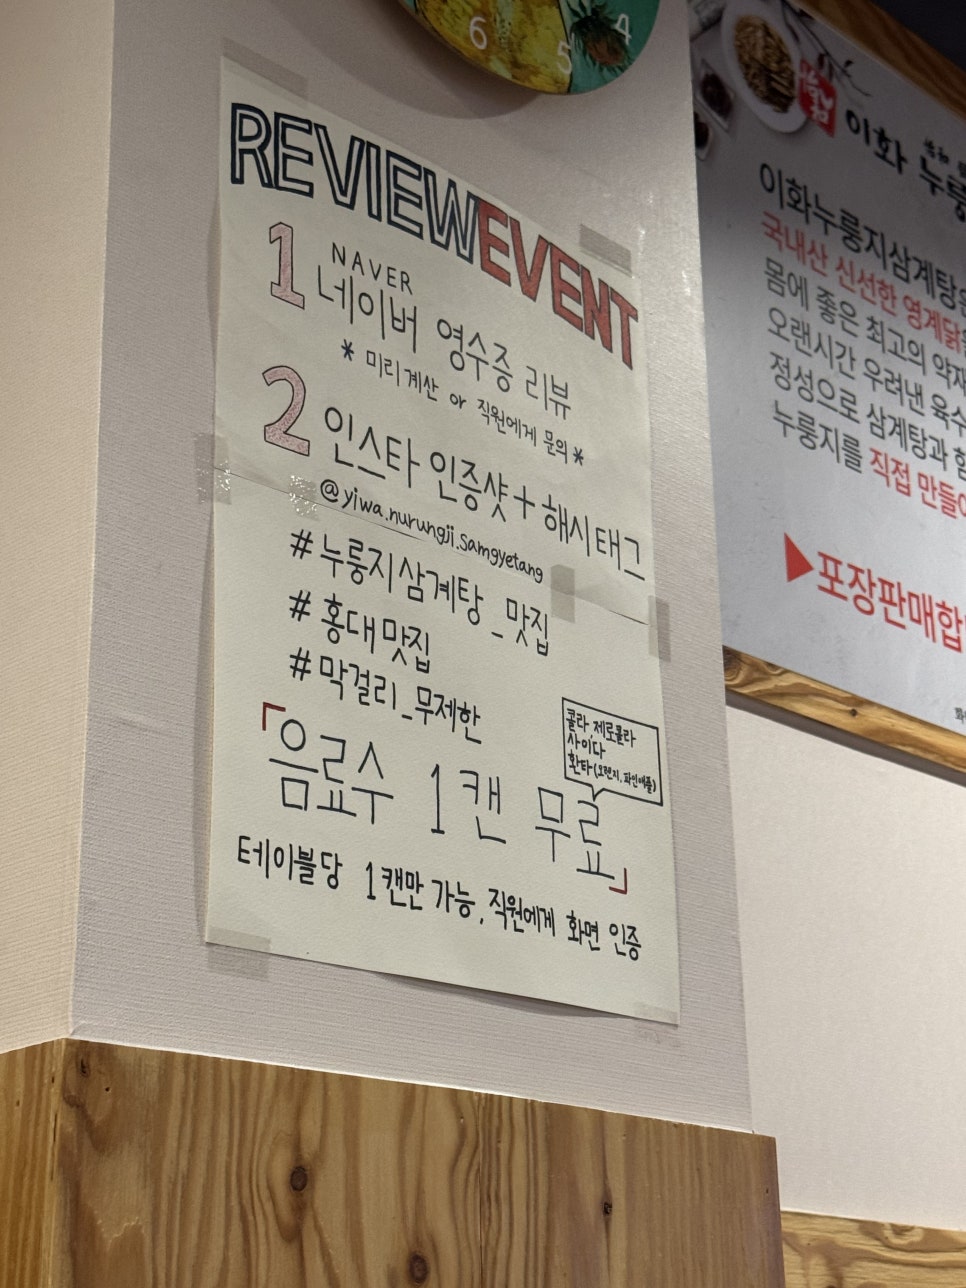 REVIEW EVENT
1 NAVER
네이버 영수증 리뷰
* 미리 계산 or 직원에게 문의 *
2 인스타 인증샷 + 해시태그
@yiwa.nurungji.samgyetang
#누룽지삼계탕_맛집
#홍대맛집
#막걸리_무제한
콜라, 제로콜라
사이다
환타(오렌지, 파인애플)
「음료수 1캔 무료」
테이블당 1캔만 가능, 직원에게 화면 인증
6 5 4
이화 누룽
이화누룽지삼계탕은
국내산 신선한 영계닭을
몸에 좋은 최고의 약재
오랜시간 우려낸 육수
정성으로 삼계탕과 함
누룽지를 직접 만들어
▶포장판매합